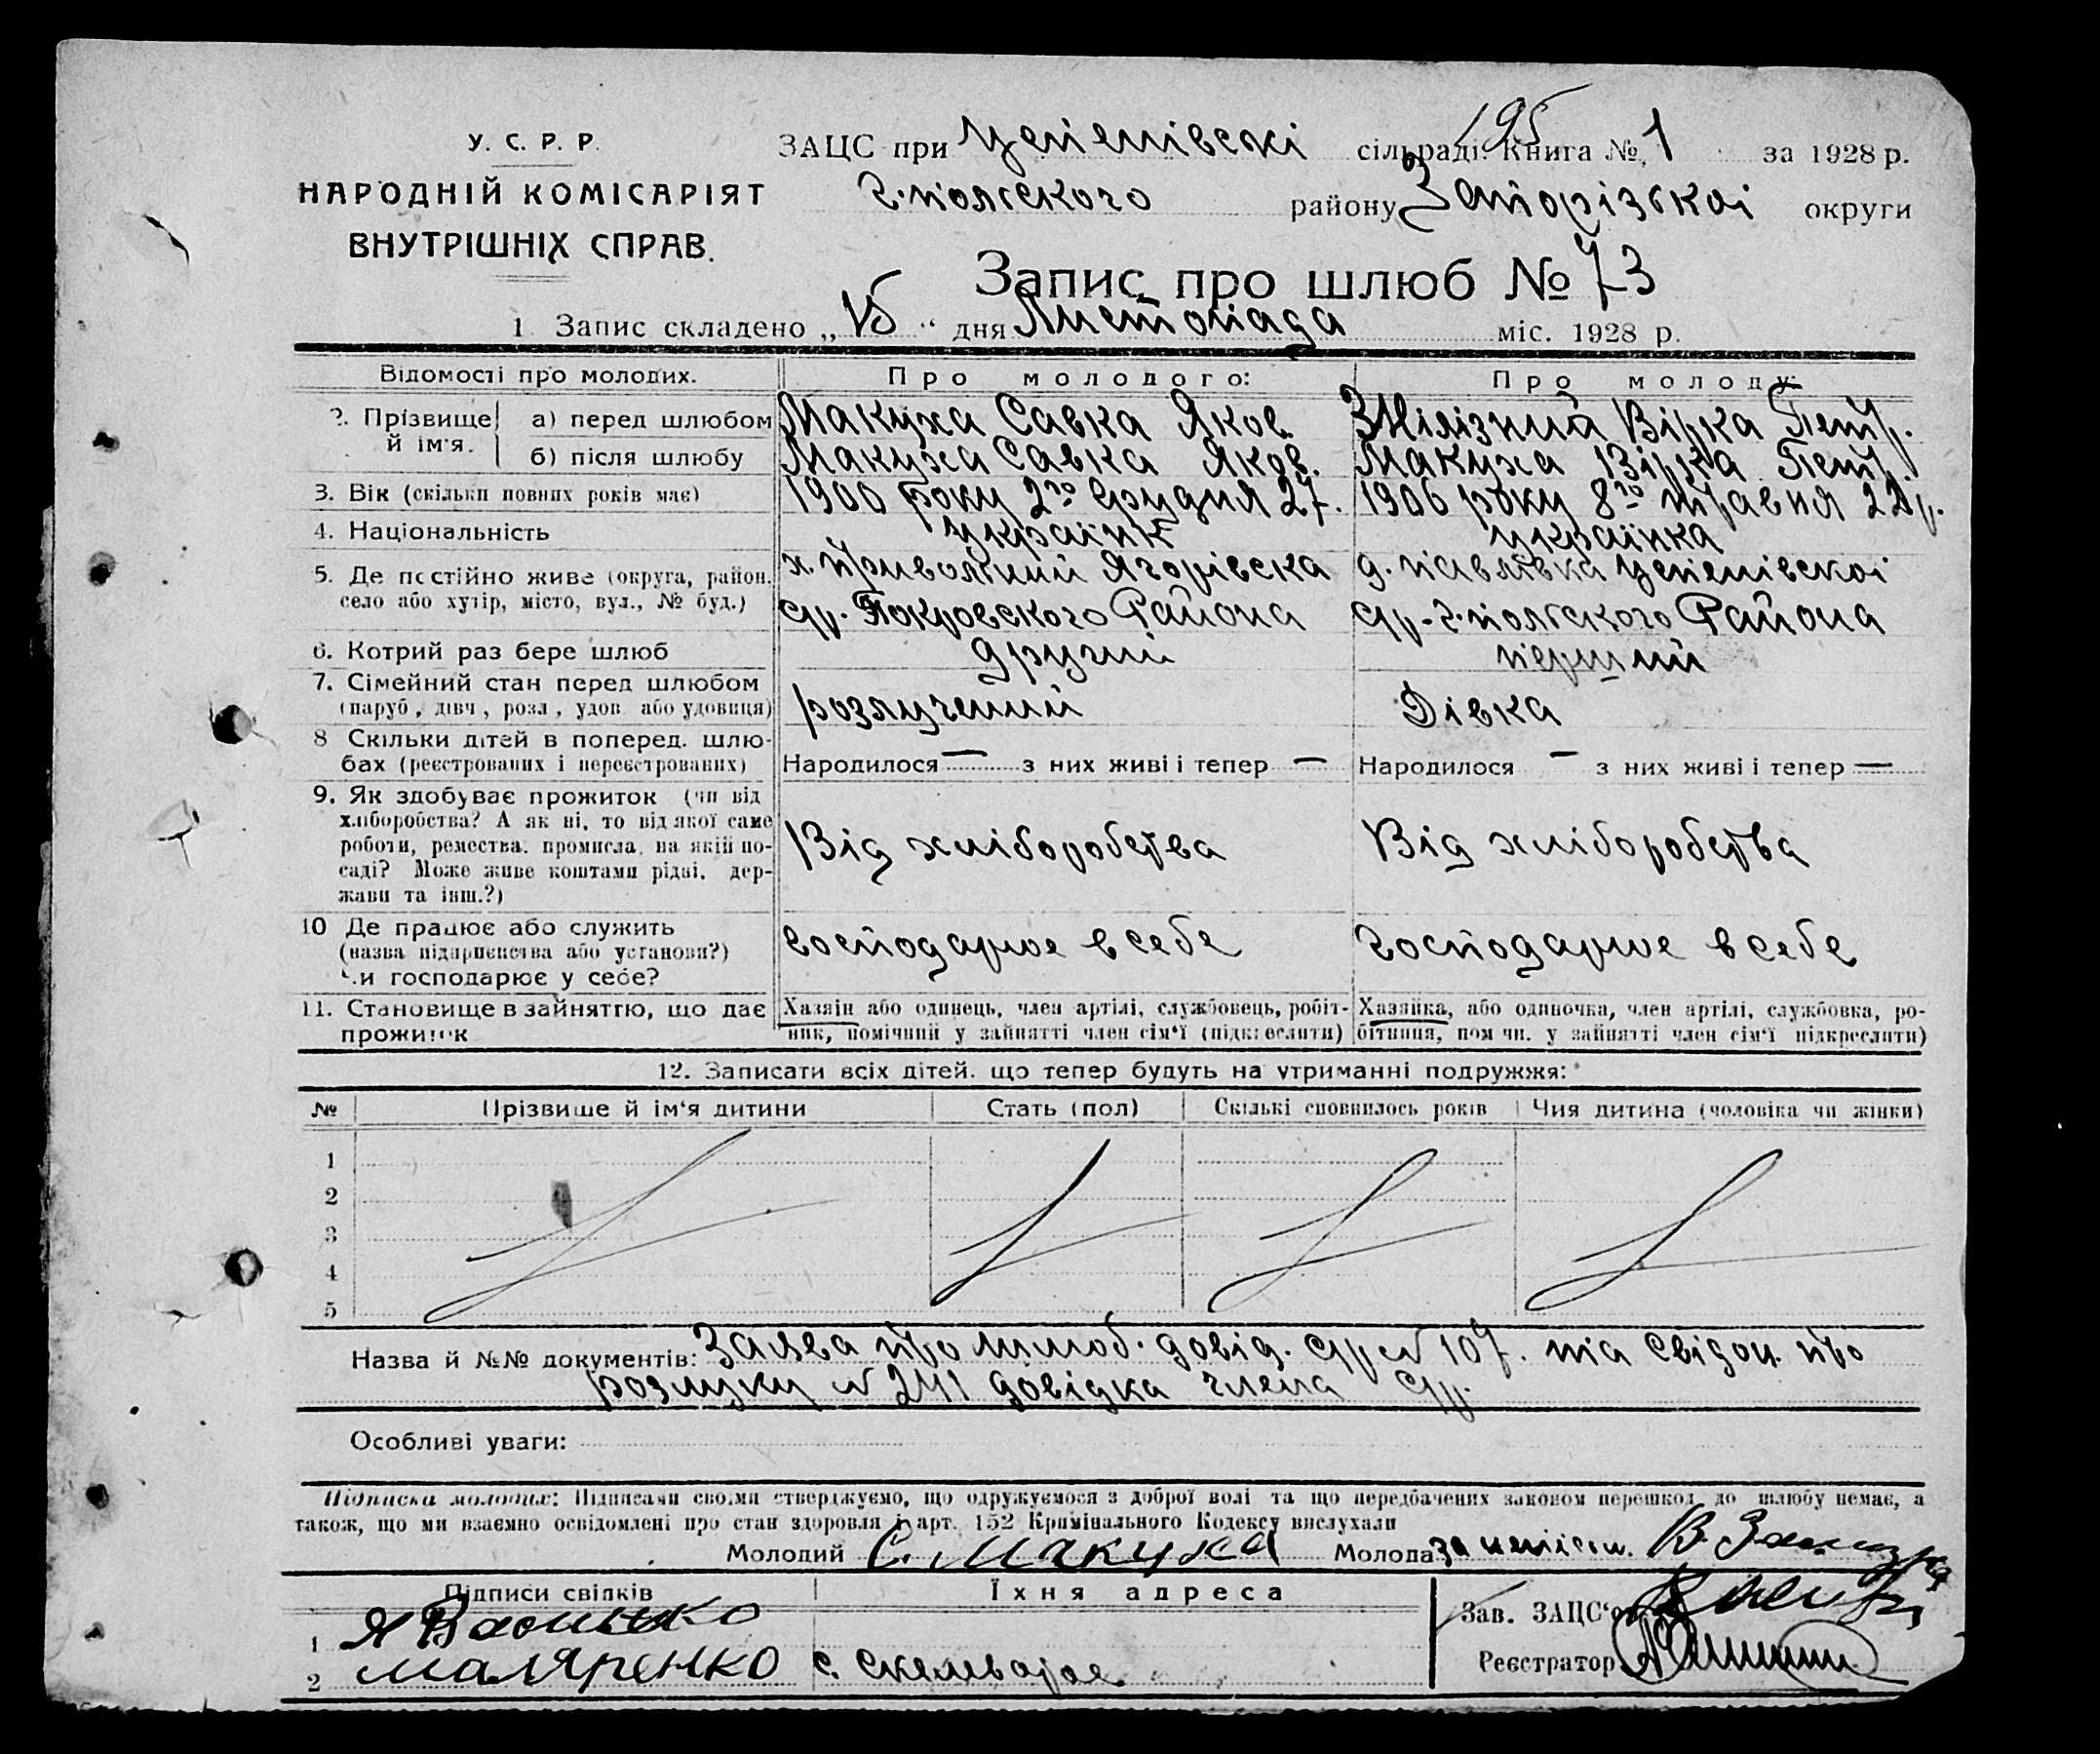 195
У. С. Р. Р.
НАРОДНІЙ КОМІСАРІЯТ
ВНУТРІШНІХ СПРАВ.
ЗАЦС при Цепенівскі сільраді. Книга №, 1 за 1928 р.
г.-польского району Запорізької округи
Запис про шлюб № 73
1 Запис складено „ 15 “ дня Листопада міс. 1928 р.
Відомості про молодих. Про молодого: Про молоду:
2. Прізвище й ім'я. а) перед шлюбом Макуха Савка Яков. Вірка Петр.
б) після шлюбу Макуха Савка Яков. Макуха Вірка Петр.
3. Вік (скільки повних років має) 1900 року 2го Грудня 27. 1906 року 8го травня 22 р.
4. Національність українк українка
5. Де постійно живе (округа, район. х. привольний Ягорівска д. павлівка Цепенівскої
село або хутір, місто, вул., № буд.) С/р. Покровского Района С/р. г. польского Района
6. Котрий раз бере шлюб другий перший
7. Сімейний стан перед шлюбом розлучений Дівка
(паруб., дівч., розл., удов. або удовиця)
8 Скільки дітей в поперед. шлю-
бах (реєстрованих і нереєстрованих) Народилося — з них живі і тепер — Народилося — з них живі і тепер —
9. Як здобуває прожиток (чи від
хліборобства? А як ні, то від якої саме
роботи, ремества, промисла, на якій по- Від хліборобства Від хліборобства
саді? Може живе коштами рідні, дер-
жави та інш.?)
10 Де працює або служить господарює в себе господарює в себе
(назва підприємства або установи?)
Чи господарює у себе?
11. Становище в зайняттю, що дає Хазяін або одинець, член артілі, службовець, робіт- Хазяйка, або одиночка, член артілі, службовка, ро-
прожиток ник, помічний у зайнятті член сім'ї (підкреслити) бітниця, пом чн. у зайнятті член сім'ї підкреслити)
12. Записати всіх дітей, що тепер будуть на утриманні подружжя:
№ Прізвище й ім'я дитини Стать (пол) Скількі сповнилось років Чия дитина (чоловіка чи жінки)
1
2
3
4
5
Назва й №№ документів: Заява про шлюб. довід. С/р № 107. та Свідоц. про
розлуку № 241 довідка члена С/р.
Особливі уваги:
Підписка молодих: Підписами своїми стверджуємо, що одружуємося з доброї волі та що передбачених законом перешкод до шлюбу немає, а
також, що ми взаємно освідомлені про стан здоровля і арт. 152 Кримінального Кодексу вислухали
Молодий С. Макуха Молода за неписм. В.
Підписи свідків Їхня адреса
Зав. ЗАЦС'ом
1 Я Васинько
Реєстратор
2 маляренко с.